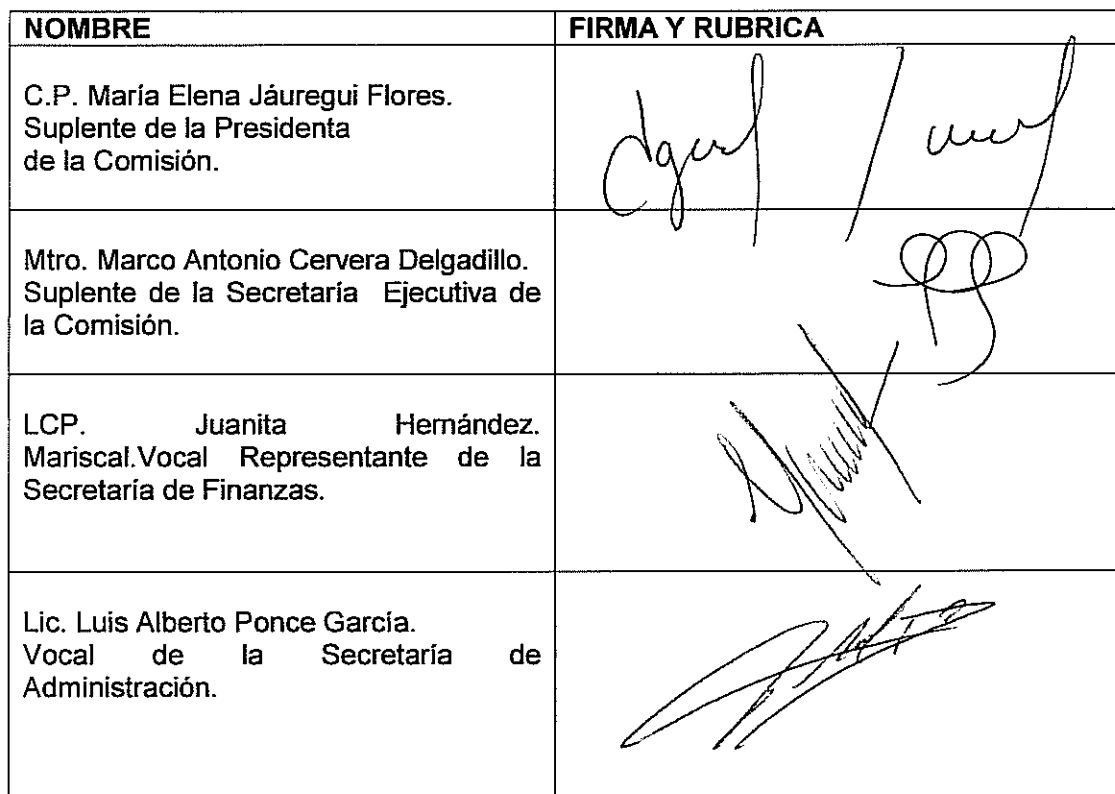 NOMBRE FIRMA Y RUBRICA
C.P. María Elena Jáuregui Flores.
Suplente de la Presidenta
de la Comisión.
Mtro. Marco Antonio Cervera Delgadillo.
Suplente de la Secretaría Ejecutiva de
la Comisión.
LCP. Juanita Hernández.
Mariscal.Vocal Representante de la
Secretaría de Finanzas.
Lic. Luis Alberto Ponce García.
Vocal de la Secretaría de
Administración.